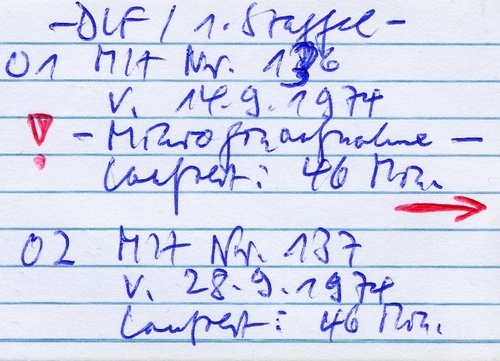 - DLF / 1. Staffel -
01 MIT Nr. 136
v. 14.9.1974
! - Mikrofonaufnahme -
Laufzeit: 46 Min.
02 MIT Nr. 137
v. 28.9.1974
Laufzeit: 46 Min.